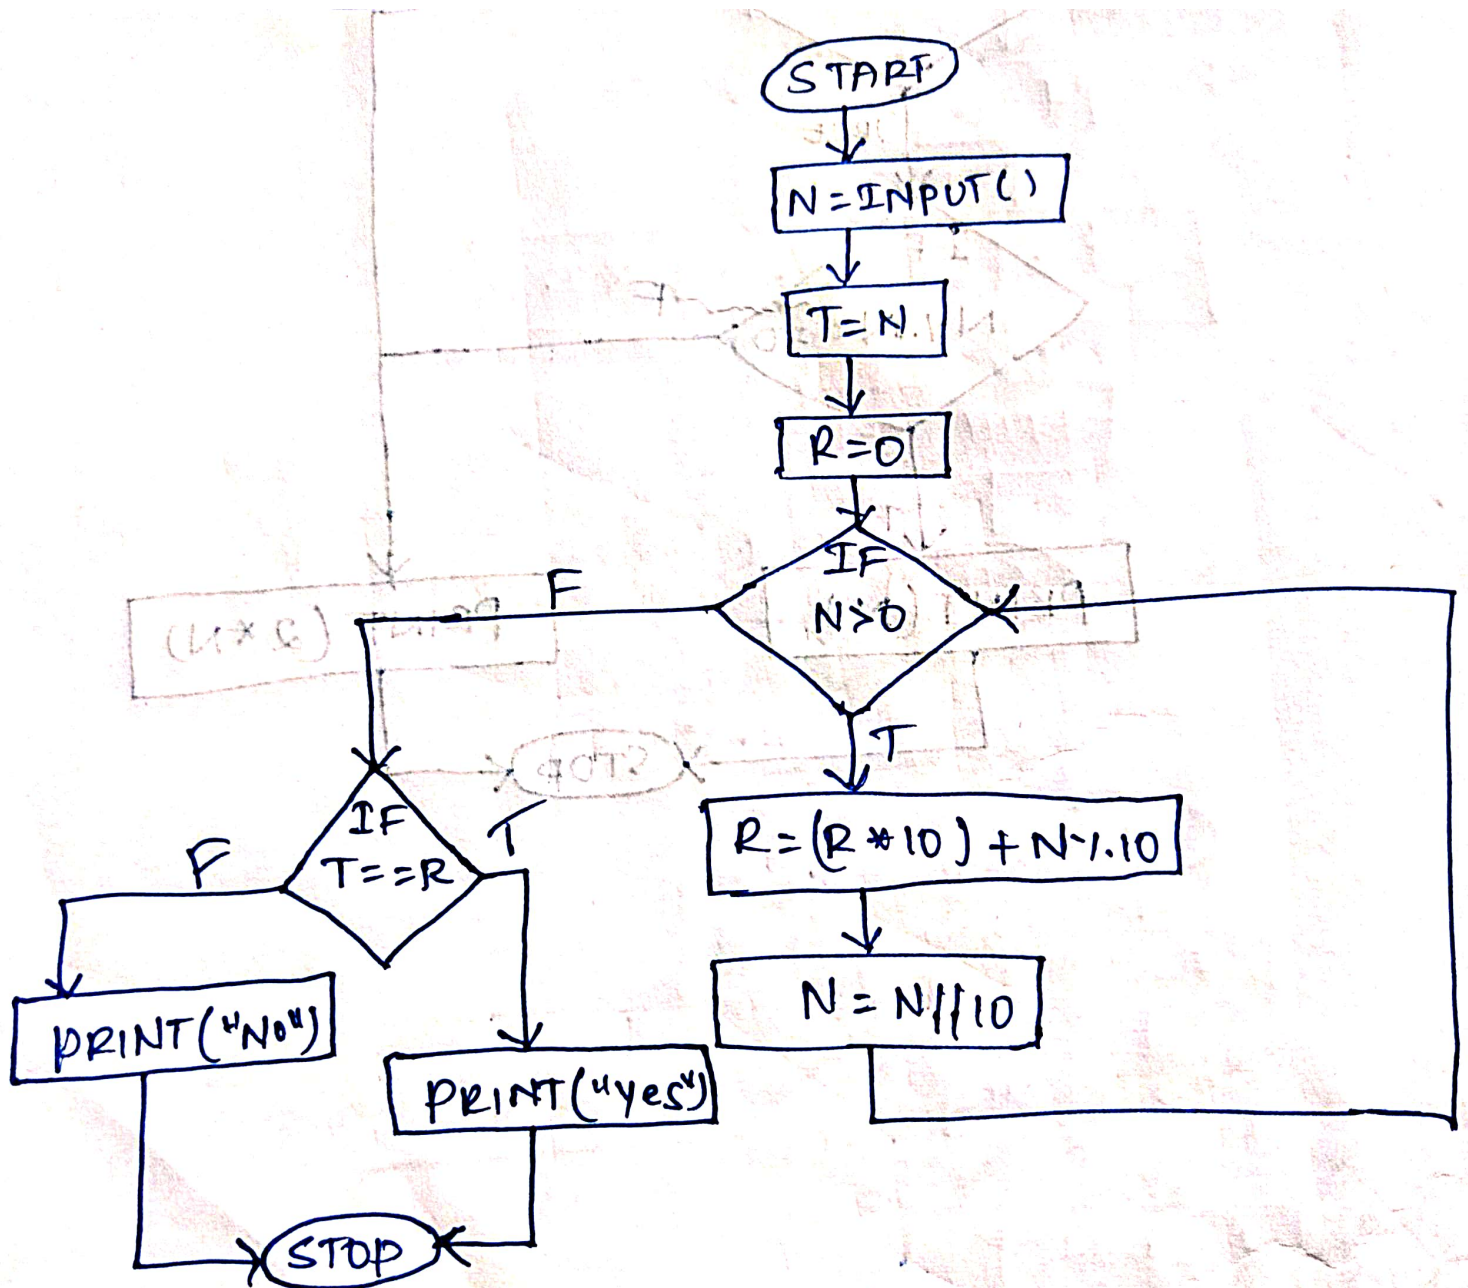 START
N=INPUT()
T=N
R=0
IF
N>0
F
T
R=(R*10)+N%10
N=N//10
IF
T==R
F
T
PRINT("No")
PRINT("yes")
STOP
PRINT (2*N)
STOP
F